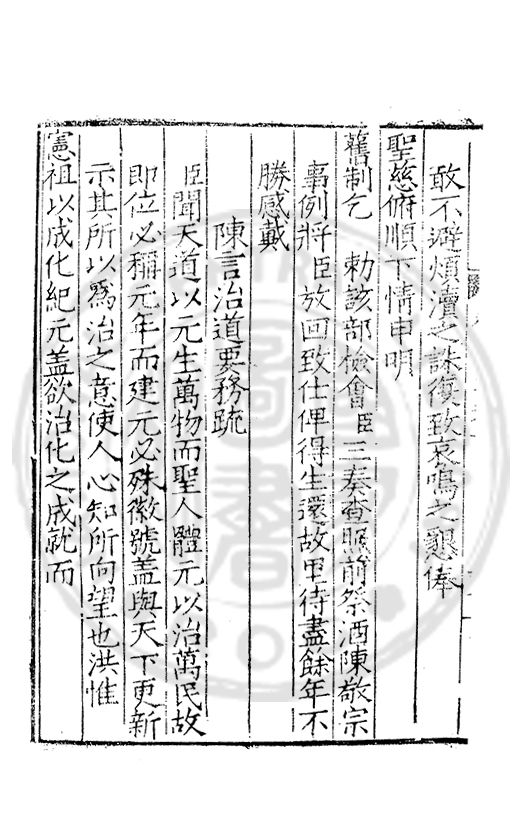 敢不避煩瀆之誅復致哀鳴之懇俸
聖慈俯順下情申明
舊制乞　勑該部檢會臣三奏查照前祭酒陳敬宗
事例將臣放回致仕俾得生還故里待盡餘年不
勝感戴
陳言治道要務疏
臣聞天道以元生萬物而聖人體元以治萬民故
即位必稱元年而建元必殊徽號盖與天下更新
示其所以爲治之意使人心知所向望也洪惟
憲祖以成化紀元盖欲治化之成就而